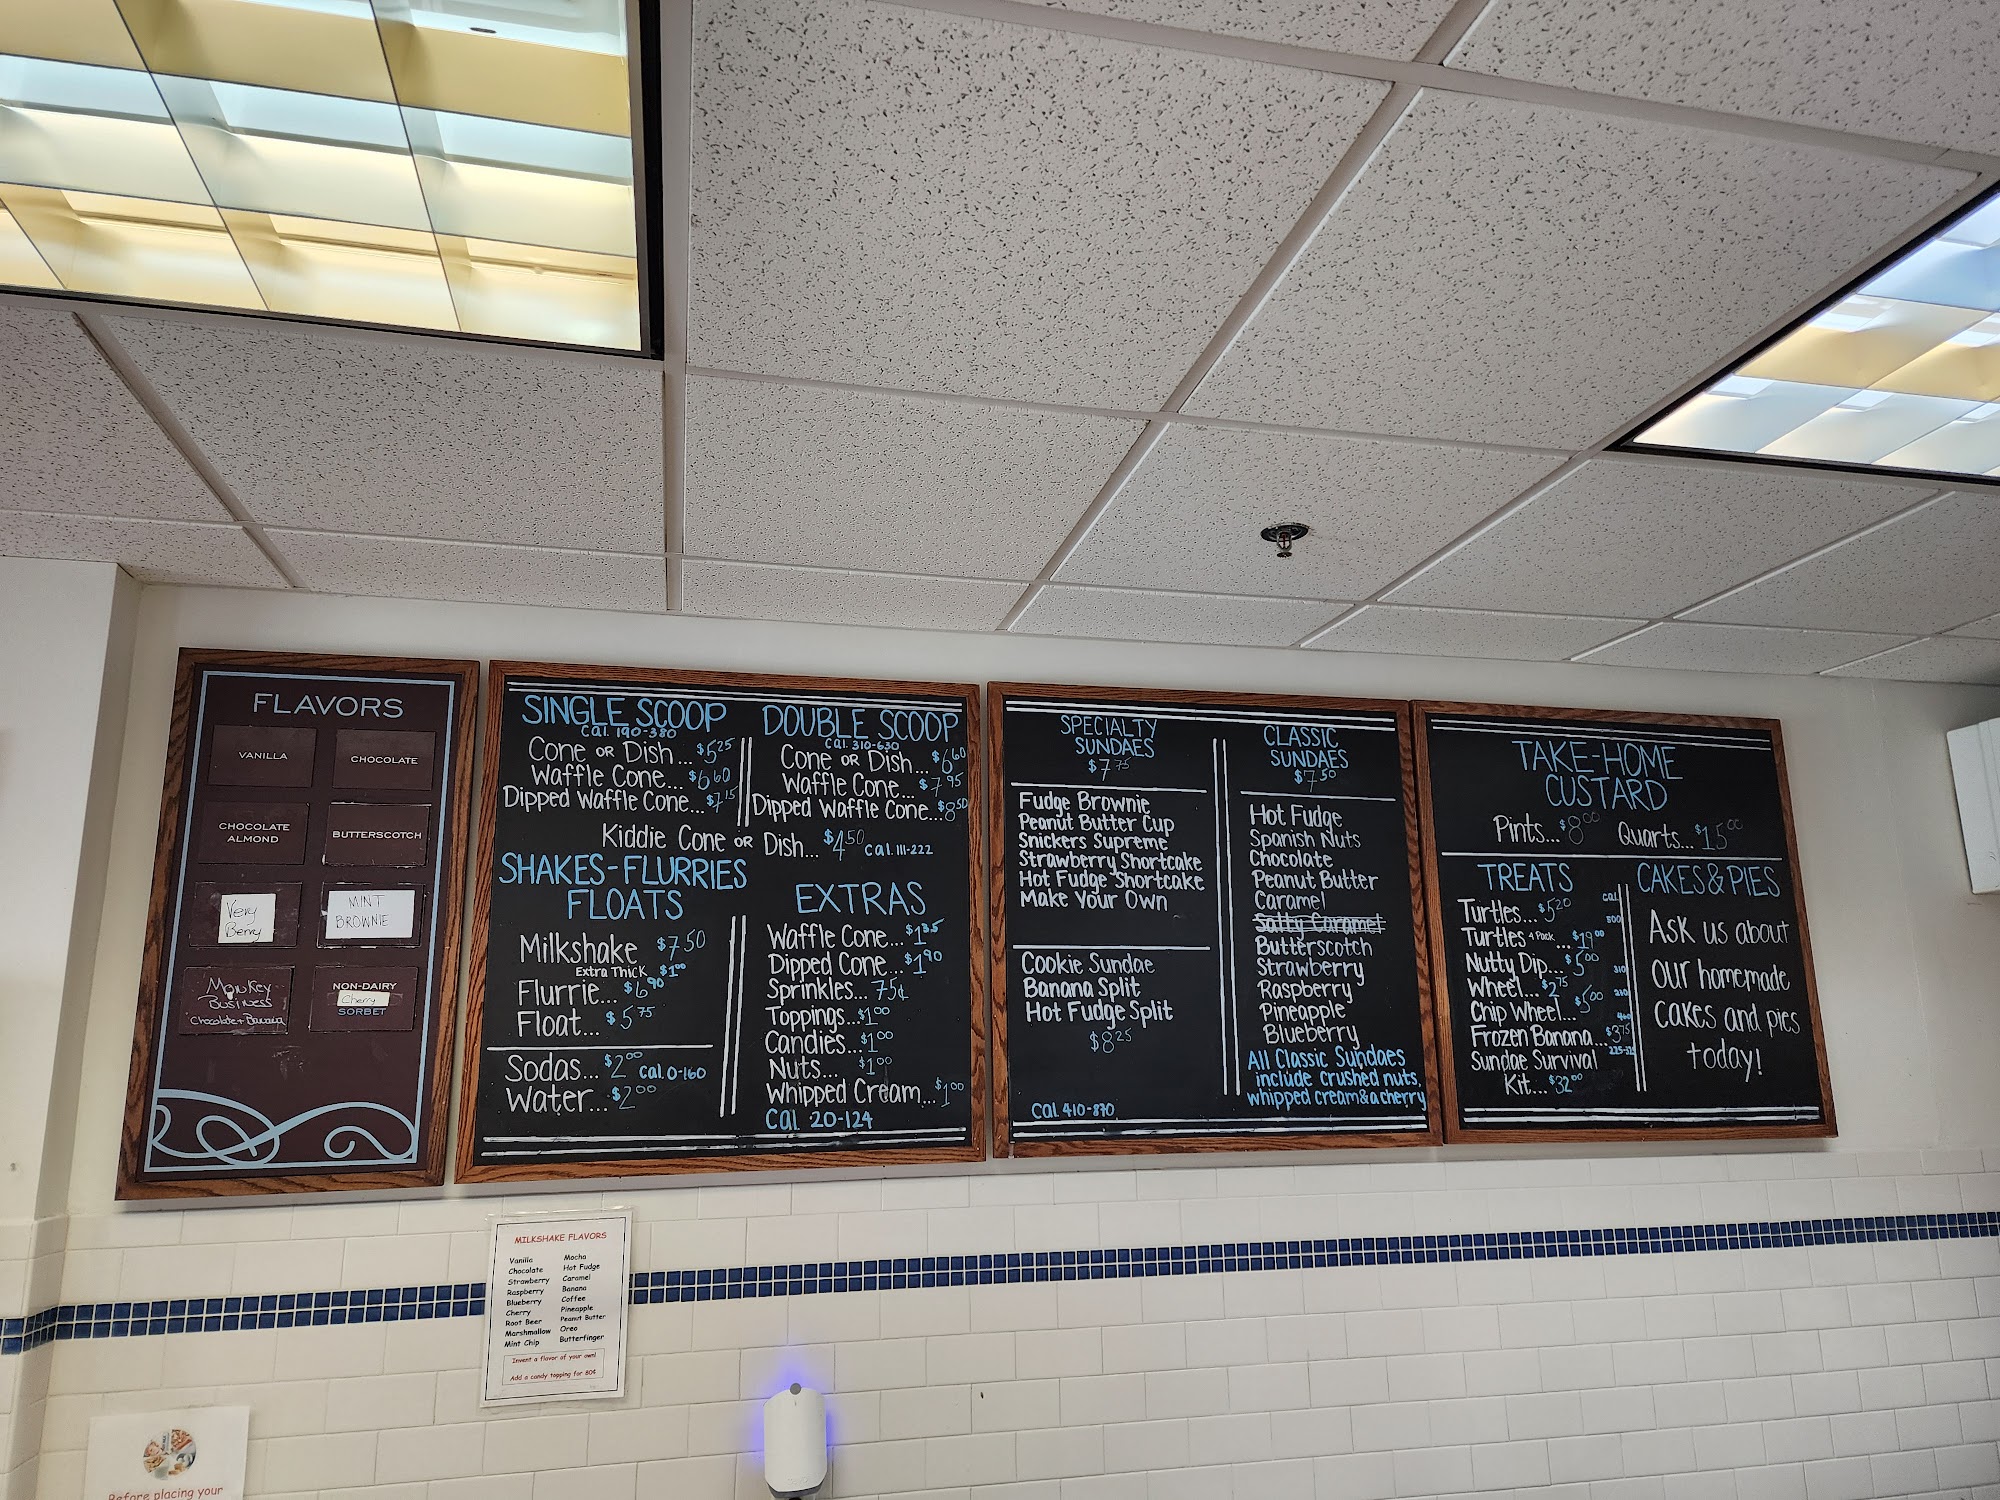 FLAVORS
VANILLA
CHOCOLATE
CHOCOLATE
ALMOND
BUTTERSCOTCH
Very
Berry
MINT
BROWNIE
Monkey
Business
Chocolate + Banana
NON-DAIRY
Cherry
SORBET
SINGLE SCOOP
Cal. 190-380
Cone or Dish... $5.25
Waffle Cone... $6.60
Dipped Waffle Cone... $7.15
DOUBLE SCOOP
Cal. 310-630
Cone or Dish... $6.60
Waffle Cone... $7.95
Dipped Waffle Cone... $8.50
Kiddie Cone or Dish... $4.50 Cal. 111-222
SHAKES-FLURRIES
FLOATS
Milkshake $7.50
Extra Thick $1.00
Flurrie... $6.90
Float... $5.75
Sodas... $2.00 Cal. 0-160
Water... $2.00
EXTRAS
Waffle Cone... $1.35
Dipped Cone... $1.90
Sprinkles... 75¢
Toppings... $1.00
Candies... $1.00
Nuts... $1.00
Whipped Cream... $1.00
Cal. 20-124
SPECIALTY
SUNDAES
$7.75
Fudge Brownie
Peanut Butter Cup
Snickers Supreme
Strawberry Shortcake
Hot Fudge Shortcake
Make Your Own
Cookie Sundae
Banana Split
Hot Fudge Split
$8.25
Cal. 410-870
CLASSIC
SUNDAES
$7.50
Hot Fudge
Spanish Nuts
Chocolate
Peanut Butter
Caramel
Salty Caramel
Butterscotch
Strawberry
Raspberry
Pineapple
Blueberry
All Classic Sundaes
include crushed nuts,
whipped cream & a cherry
TAKE-HOME
CUSTARD
Pints... $8.00 Quarts... $15.00
TREATS
Cal.
Turtles... $5.20 500
Turtles 4 Pack... $19.00
Nutty Dip... $5.00 310
Wheel... $2.75
Chip Wheel... $5.00
Frozen Banana... $3.75
Sundae Survival
Kit... $32.00
CAKES & PIES
Ask us about
our homemade
cakes and pies
today!
MILKSHAKE FLAVORS
Vanilla
Chocolate
Strawberry
Raspberry
Blueberry
Cherry
Root Beer
Marshmallow
Mint Chip
Mocha
Hot Fudge
Caramel
Banana
Coffee
Pineapple
Peanut Butter
Oreo
Butterfinger
Invent a flavor of your own!
Add a candy topping for 80¢
Before placing your